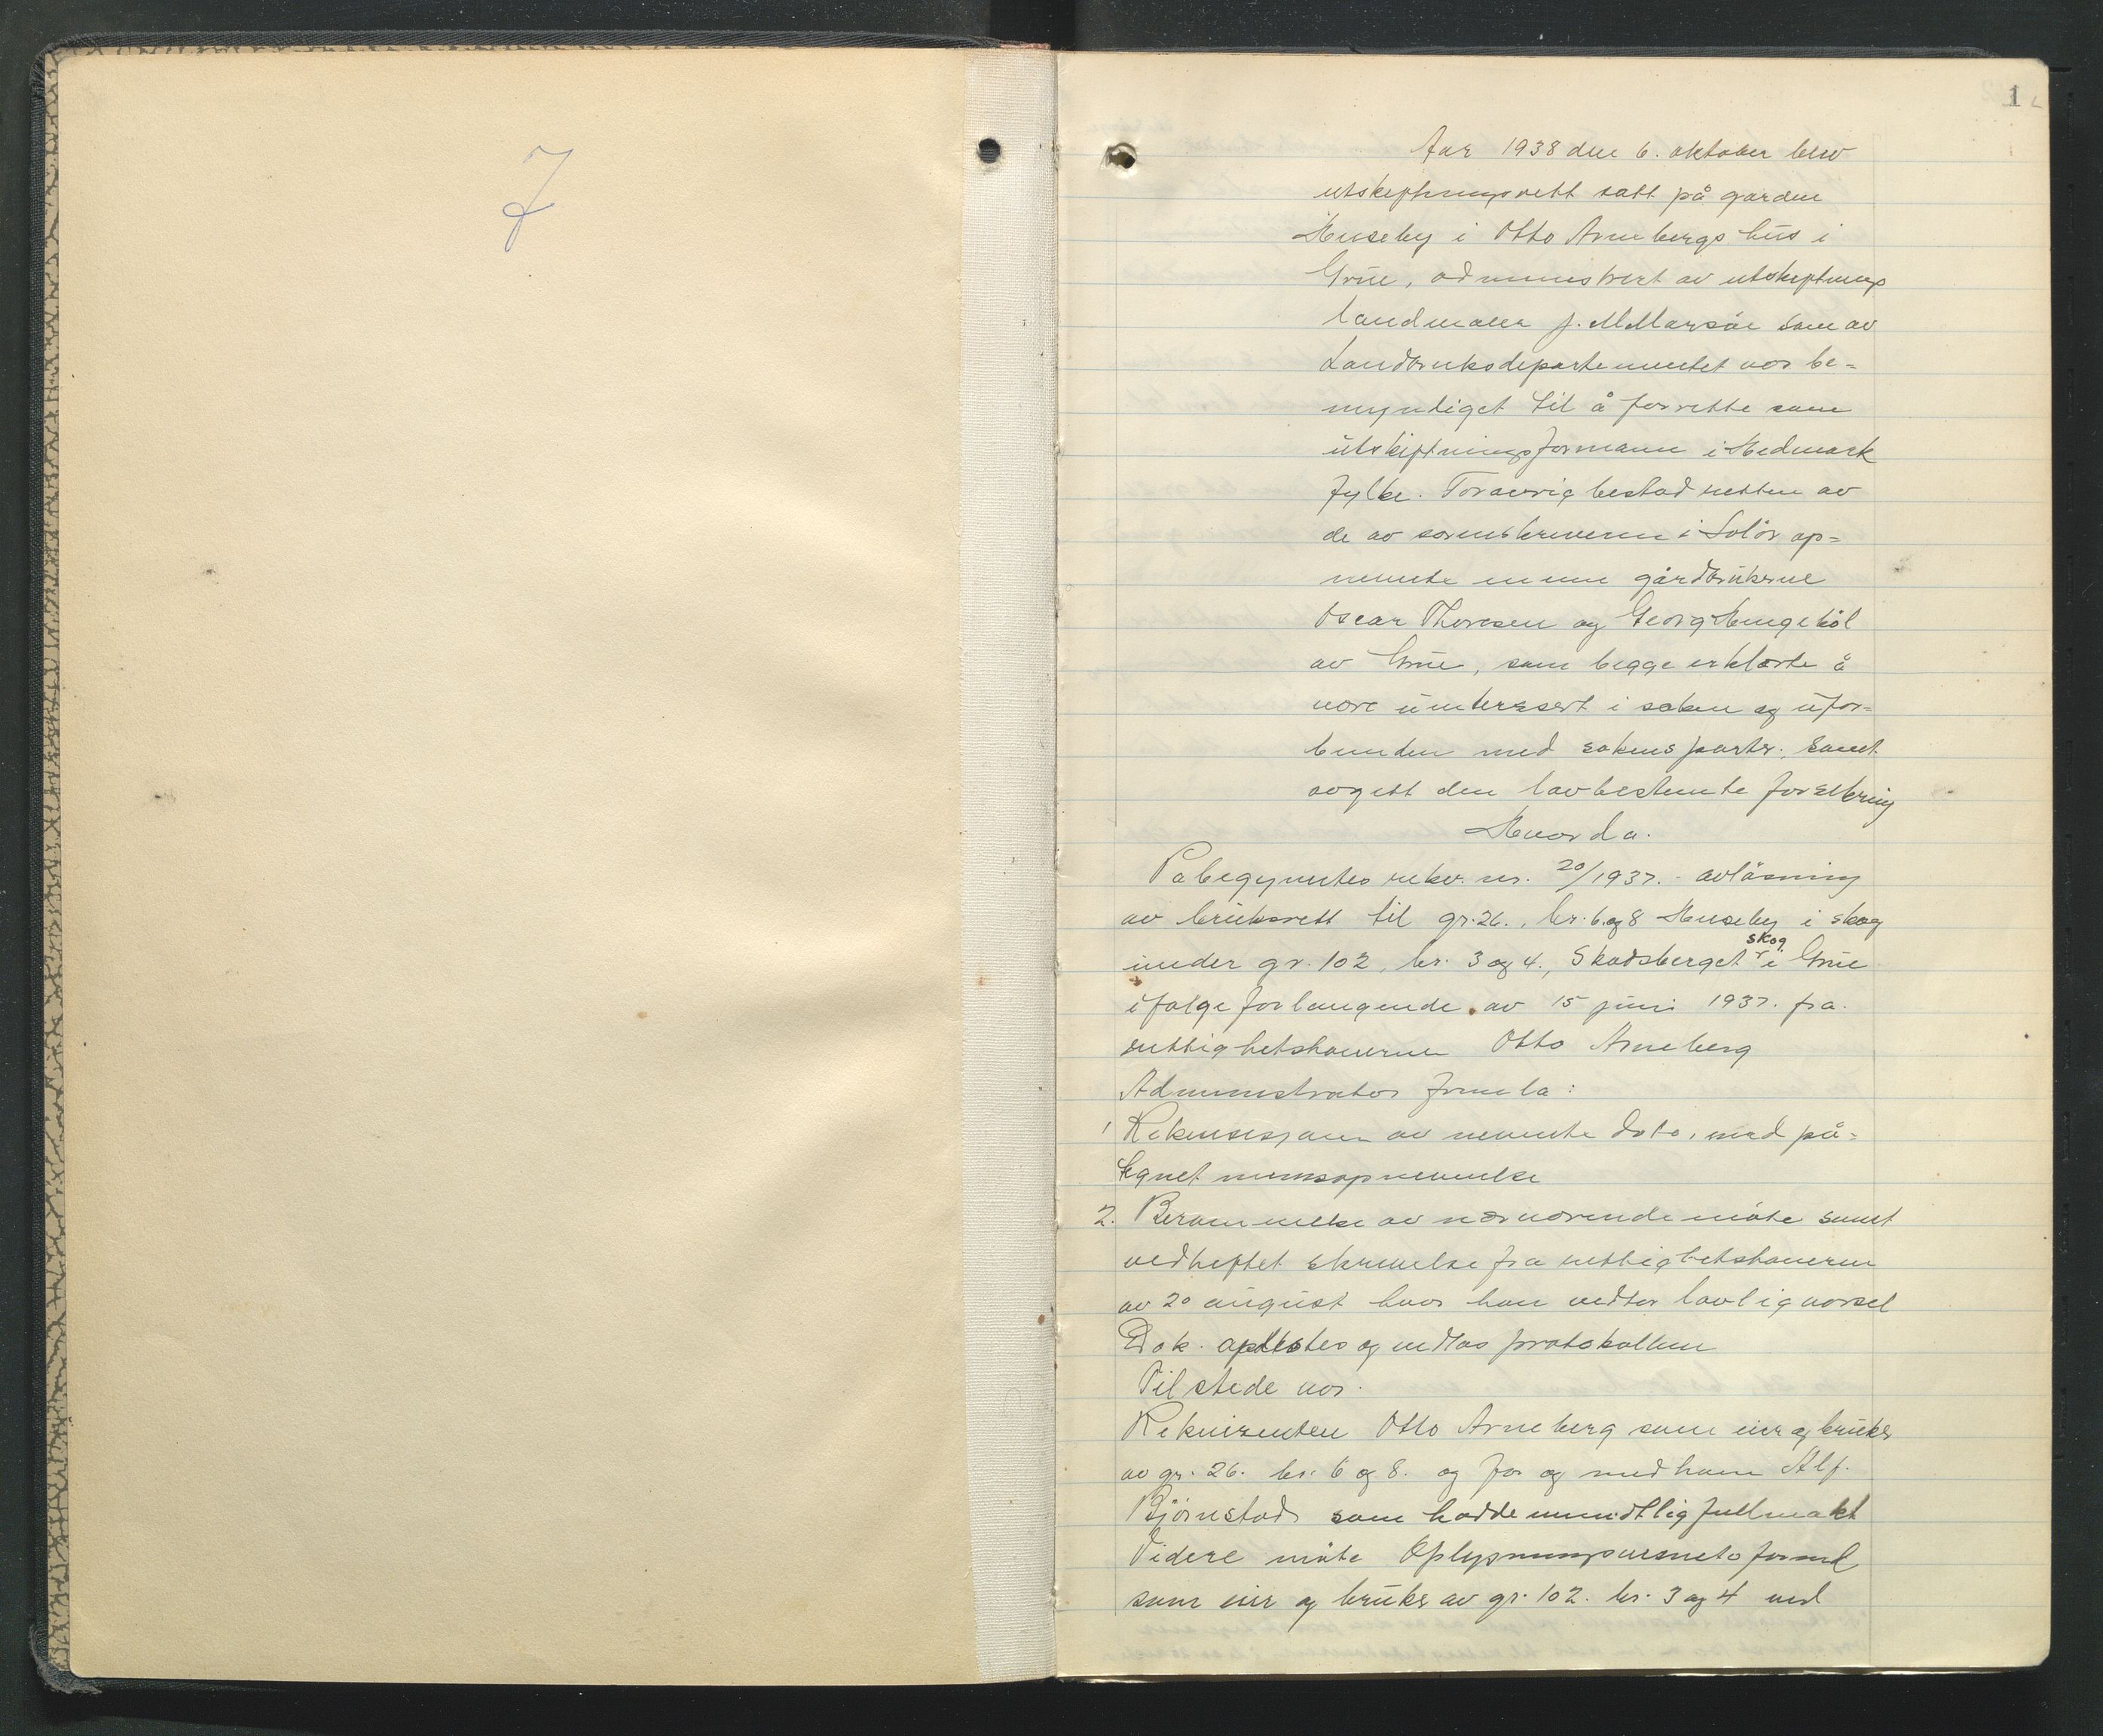 7
1
Aar 1938 den 6. oktober blev
utskiftningsrett satt på garden
Huseby i Otto Arnebergs hus i
Grue, administrert av utskiftnings
landmåler J. som av
Landbruksdepartementet var be-
myndiget til å forrette som
utskiftningsformann i Hedmark
fylke. Forøvrig bestod retten av
de av sorenskriveren i Solør op-
nevnte menn gårdbrukerne
Oscar Thoresen og Georg
av Grue, som begge erklærte å
være uinteressert i saken og ufor-
bunden med sakens parter, samt
avgitt den lovbestemte forsikring
Hvorda.
Påbegyntes rekv. nr. 20/1937. - avløsning
av bruksrett til gr. 26., br. 6 og 8 Huseby i skog
under gr. 102, br. 3 og 4., Skadsberget skog i Grue
ifølge forlangende av 15 juni 1937. fra
rettighetshaveren Otto Arneberg
Administrator fremla:
1 Rekvisisjonen av nevnte dato, med på-
tegnet mennsopnevnelse
2. Berammelse av nærværende møte samt
vedheftet skrivelse fra rettighetshaveren
av 20 august hvor han vedtar lovlig varsel
Dok. oplestes og inntas protokollen
Tilstede var.
Rekvirenten Otto Arneberg som eier og bruker
av gr. 26. br. 6 og 8. og for og med ham Alf.
Bjørnstad som hadde mundtlig fullmakt
Videre møtte Oplysningsvesnets fond
som eier og bruker av gr. 102. br. 3 og 4 ved